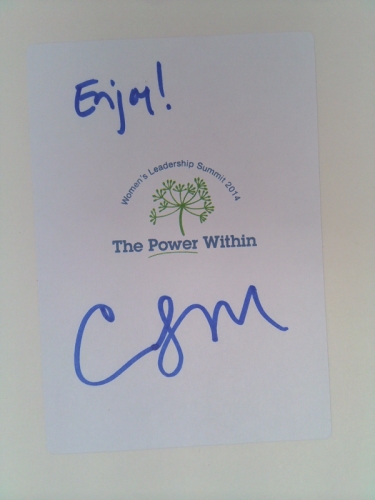 Enjoy!
Women's Leadership Summit 2014
The Power Within